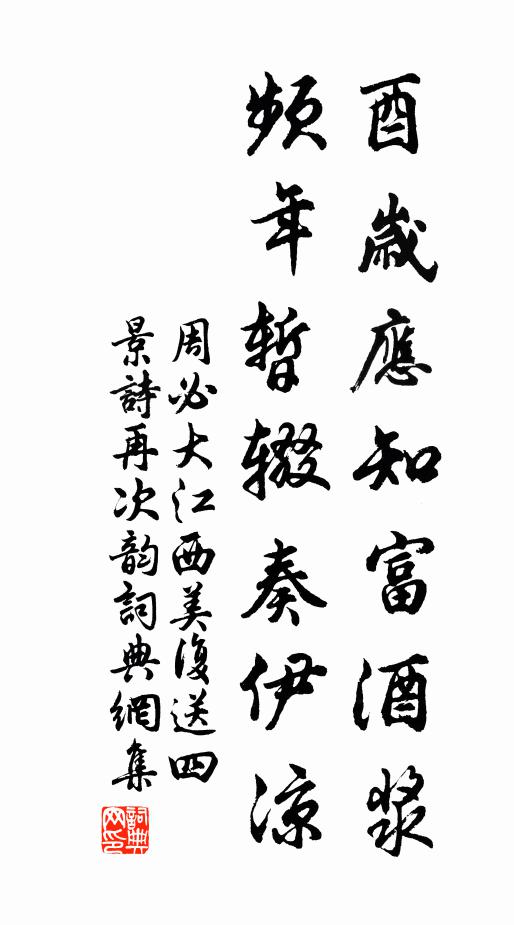 酉歲應知富酒漿
頻年暫辍奏伊涼
周必大江西美復送四
景詩再次韵詞典網集
詞典网印